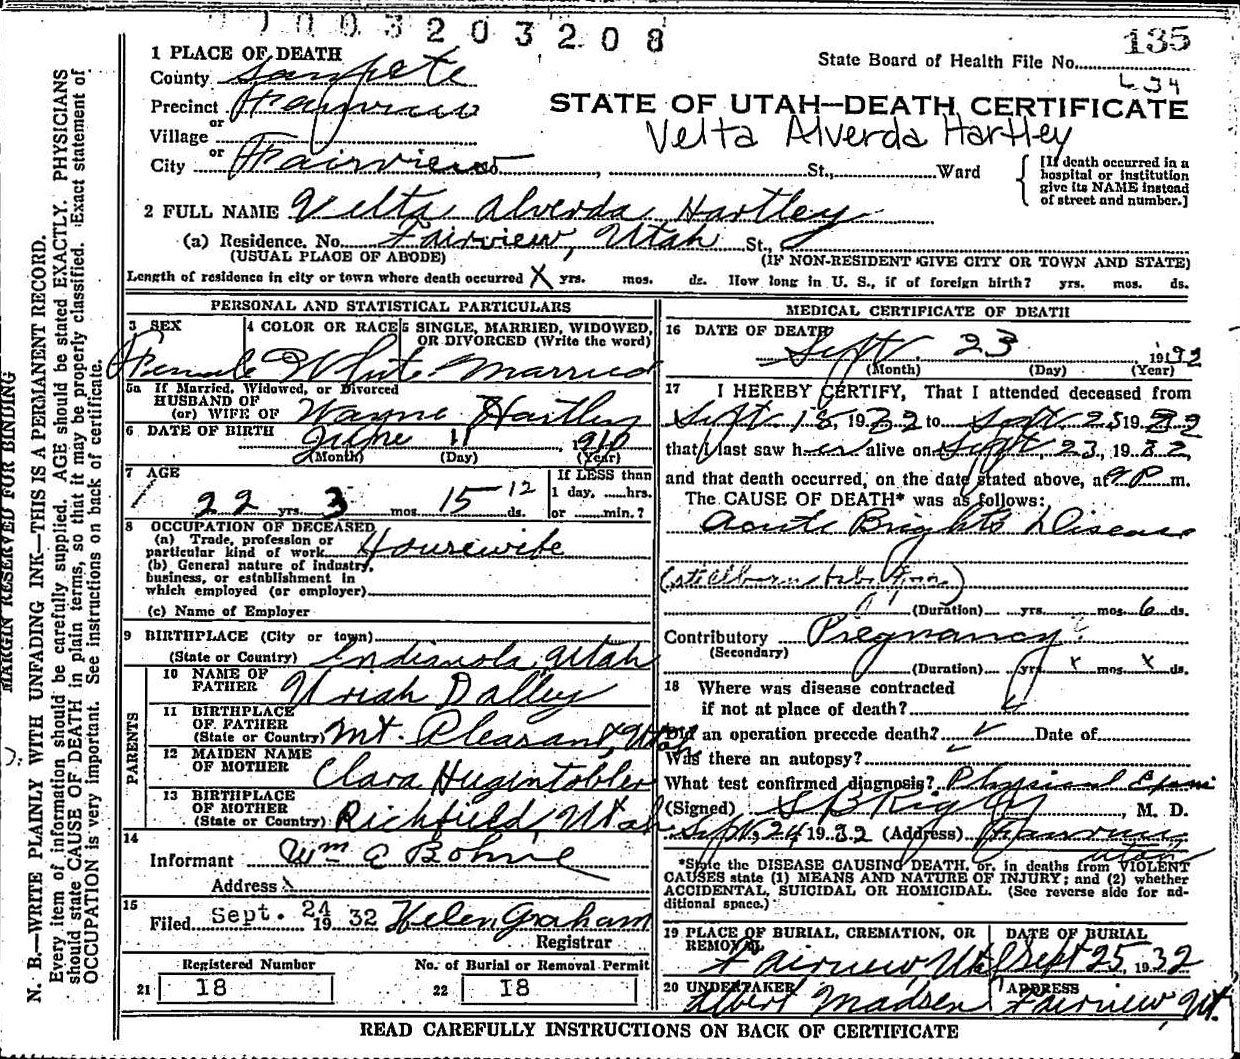 0003203208
135
State Board of Health File No.
L 34
1 PLACE OF DEATH
County Sanpete
Precinct Fairview
or
Village
or
City Fairview St., Ward
STATE OF UTAH—DEATH CERTIFICATE
Velta Alverda Hartley
[If death occurred in a
hospital or institution
give its NAME instead
of street and number.]
2 FULL NAME Velta Alverda Hartley
(a) Residence. No. Fairview, Utah St.,
(USUAL PLACE OF ABODE) (IF NON-RESIDENT GIVE CITY OR TOWN AND STATE)
Length of residence in city or town where death occurred X yrs. mos. ds. How long in U. S., if of foreign birth? yrs. mos. ds.
PERSONAL AND STATISTICAL PARTICULARS
3 SEX 4 COLOR OR RACE 5 SINGLE, MARRIED, WIDOWED,
OR DIVORCED (Write the word)
Female White Married
5a If Married, Widowed, or Divorced
HUSBAND OF
(or) WIFE OF Wayne Hartley
6 DATE OF BIRTH June 11 1910
(Month) (Day) (Year)
7 AGE If LESS than
22 yrs. 3 mos. 15 12 ds. 1 day, hrs.
or min.?
8 OCCUPATION OF DECEASED
(a) Trade, profession or
particular kind of work Housewife
(b) General nature of industry,
business, or establishment in
which employed (or employer)
(c) Name of Employer
9 BIRTHPLACE (City or town)
(State or Country) Indianola, Utah
PARENTS
10 NAME OF
FATHER Uriah Dalley
11 BIRTHPLACE
OF FATHER
(State or Country) Mt. Pleasant, Utah
12 MAIDEN NAME
OF MOTHER Clara Hugentobler
13 BIRTHPLACE
OF MOTHER
(State or Country) Richfield, Utah
14
Informant Wm E Bohne
Address
15
Filed Sept. 24 1932 Helen Graham
Registrar
Registered Number No. of Burial or Removal Permit
21 18 22 18
MEDICAL CERTIFICATE OF DEATH
16 DATE OF DEATH
Sept. 23 1932
(Month) (Day) (Year)
17 I HEREBY CERTIFY, That I attended deceased from
Sept 18, 1932 to Sept 23 1932
that I last saw her alive on Sept. 23, 1932,
and that death occurred, on the date stated above, at 9 P m.
The CAUSE OF DEATH* was as follows:
Acute Brights Disease
(stillborn
(Duration) yrs. mos. 6 ds.
Contributory Pregnancy
(Secondary)
(Duration) yrs. x mos. x ds.
18 Where was disease contracted
if not at place of death?
Did an operation precede death? Date of
Was there an autopsy?
What test confirmed diagnosis? Physical Exam
(Signed) S B Rigby, M. D.
Sept, 24 1932 (Address) Fairview
Utah
*State the DISEASE CAUSING DEATH, or, in deaths from VIOLENT
CAUSES state (1) MEANS AND NATURE OF INJURY; and (2) whether
ACCIDENTAL, SUICIDAL OR HOMICIDAL. (See reverse side for ad-
ditional space.)
19 PLACE OF BURIAL, CREMATION, OR
REMOVAL DATE OF BURIAL
Fairview, Utah Sept 25, 1932
20 UNDERTAKER ADDRESS
Albert Madsen Fairview, Ut.
READ CAREFULLY INSTRUCTIONS ON BACK OF CERTIFICATE
MARGIN RESERVED FOR BINDING
N. B.—WRITE PLAINLY WITH UNFADING INK—THIS IS A PERMANENT RECORD.
Every item of information should be carefully supplied. AGE should be stated EXACTLY. PHYSICIANS
should state CAUSE OF DEATH in plain terms, so that it may be properly classified. Exact statement of
OCCUPATION is very important. See instructions on back of certificate.